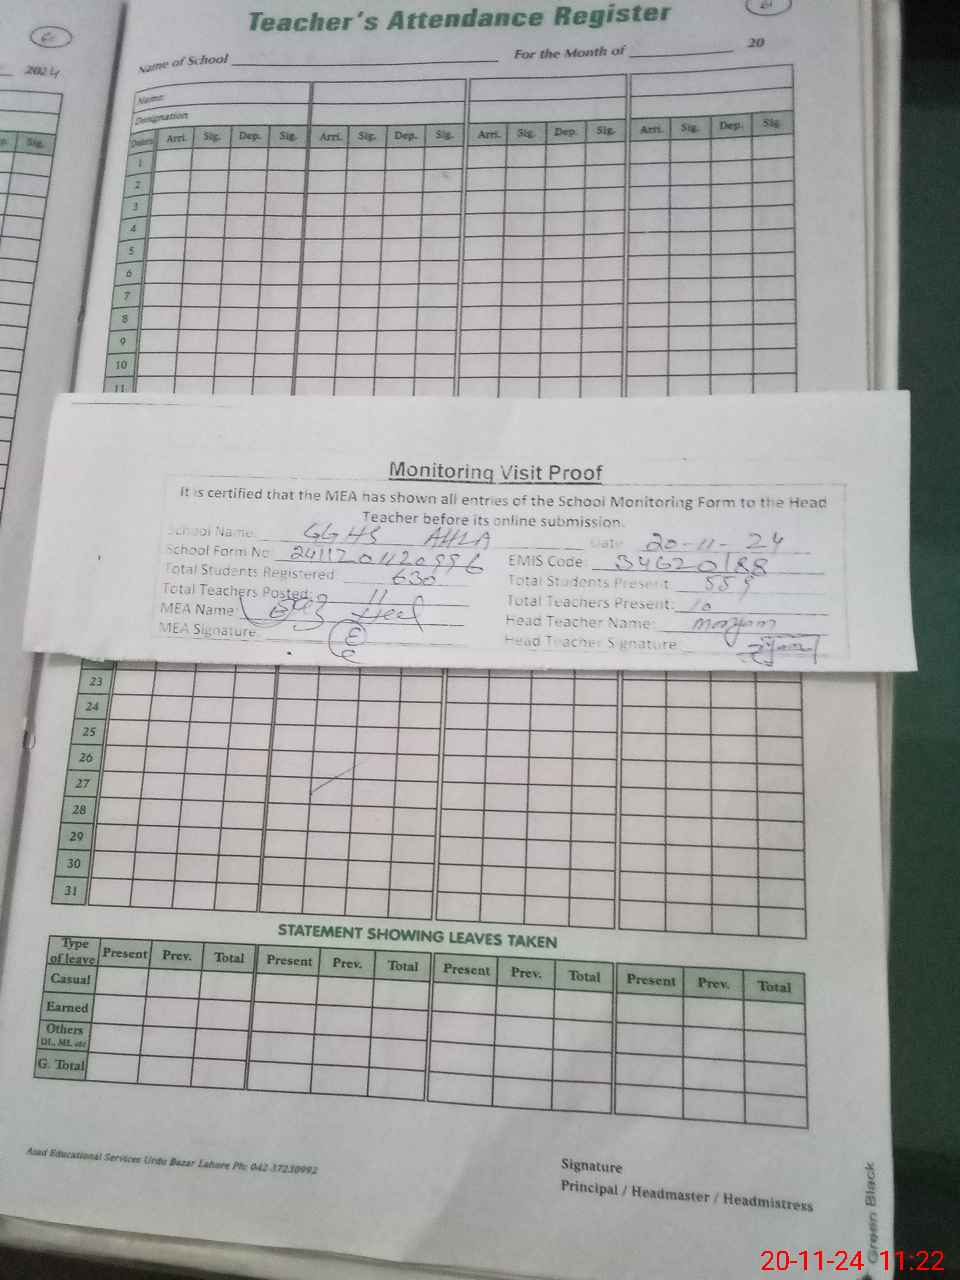 2024
p. Sig.
Teacher's Attendance Register
Name of School ____________ For the Month of ________ 20
Name
Designation
Dates Arri. Sig. Dep. Sig. Arri. Sig. Dep. Sig. Arri. Sig. Dep. Sig. Arri. Sig. Dep. Sig.
1
2
3
4
5
6
7
8
9
10
11
Monitoring Visit Proof
It is certified that the MEA has shown all entries of the School Monitoring Form to the Head
Teacher before its online submission.
School Name: GGHS AHLA Date 20-11-24
School Form No EMIS Code: 34620188
Total Students Registered: 630 Total Students Present: 559
Total Teachers Posted: 11 Total Teachers Present: 10
MEA Name: Head Teacher Name: Maryam
MEA Signature: Head Teacher Signature
23
24
25
26
27
28
29
30
31
STATEMENT SHOWING LEAVES TAKEN
Type of leave Present Prev. Total Present Prev. Total Present Prev. Total Present Prev. Total
Casual
Earned
Others
DL, ML etc
G. Total
Asad Educational Services Urdu Bazar Lahore Ph: 042-37230992
Signature
Principal / Headmaster / Headmistress
Green Black
20-11-24 11:22